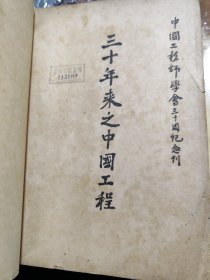 中國工程師學會三十周紀念刊
三十年來之中國工程